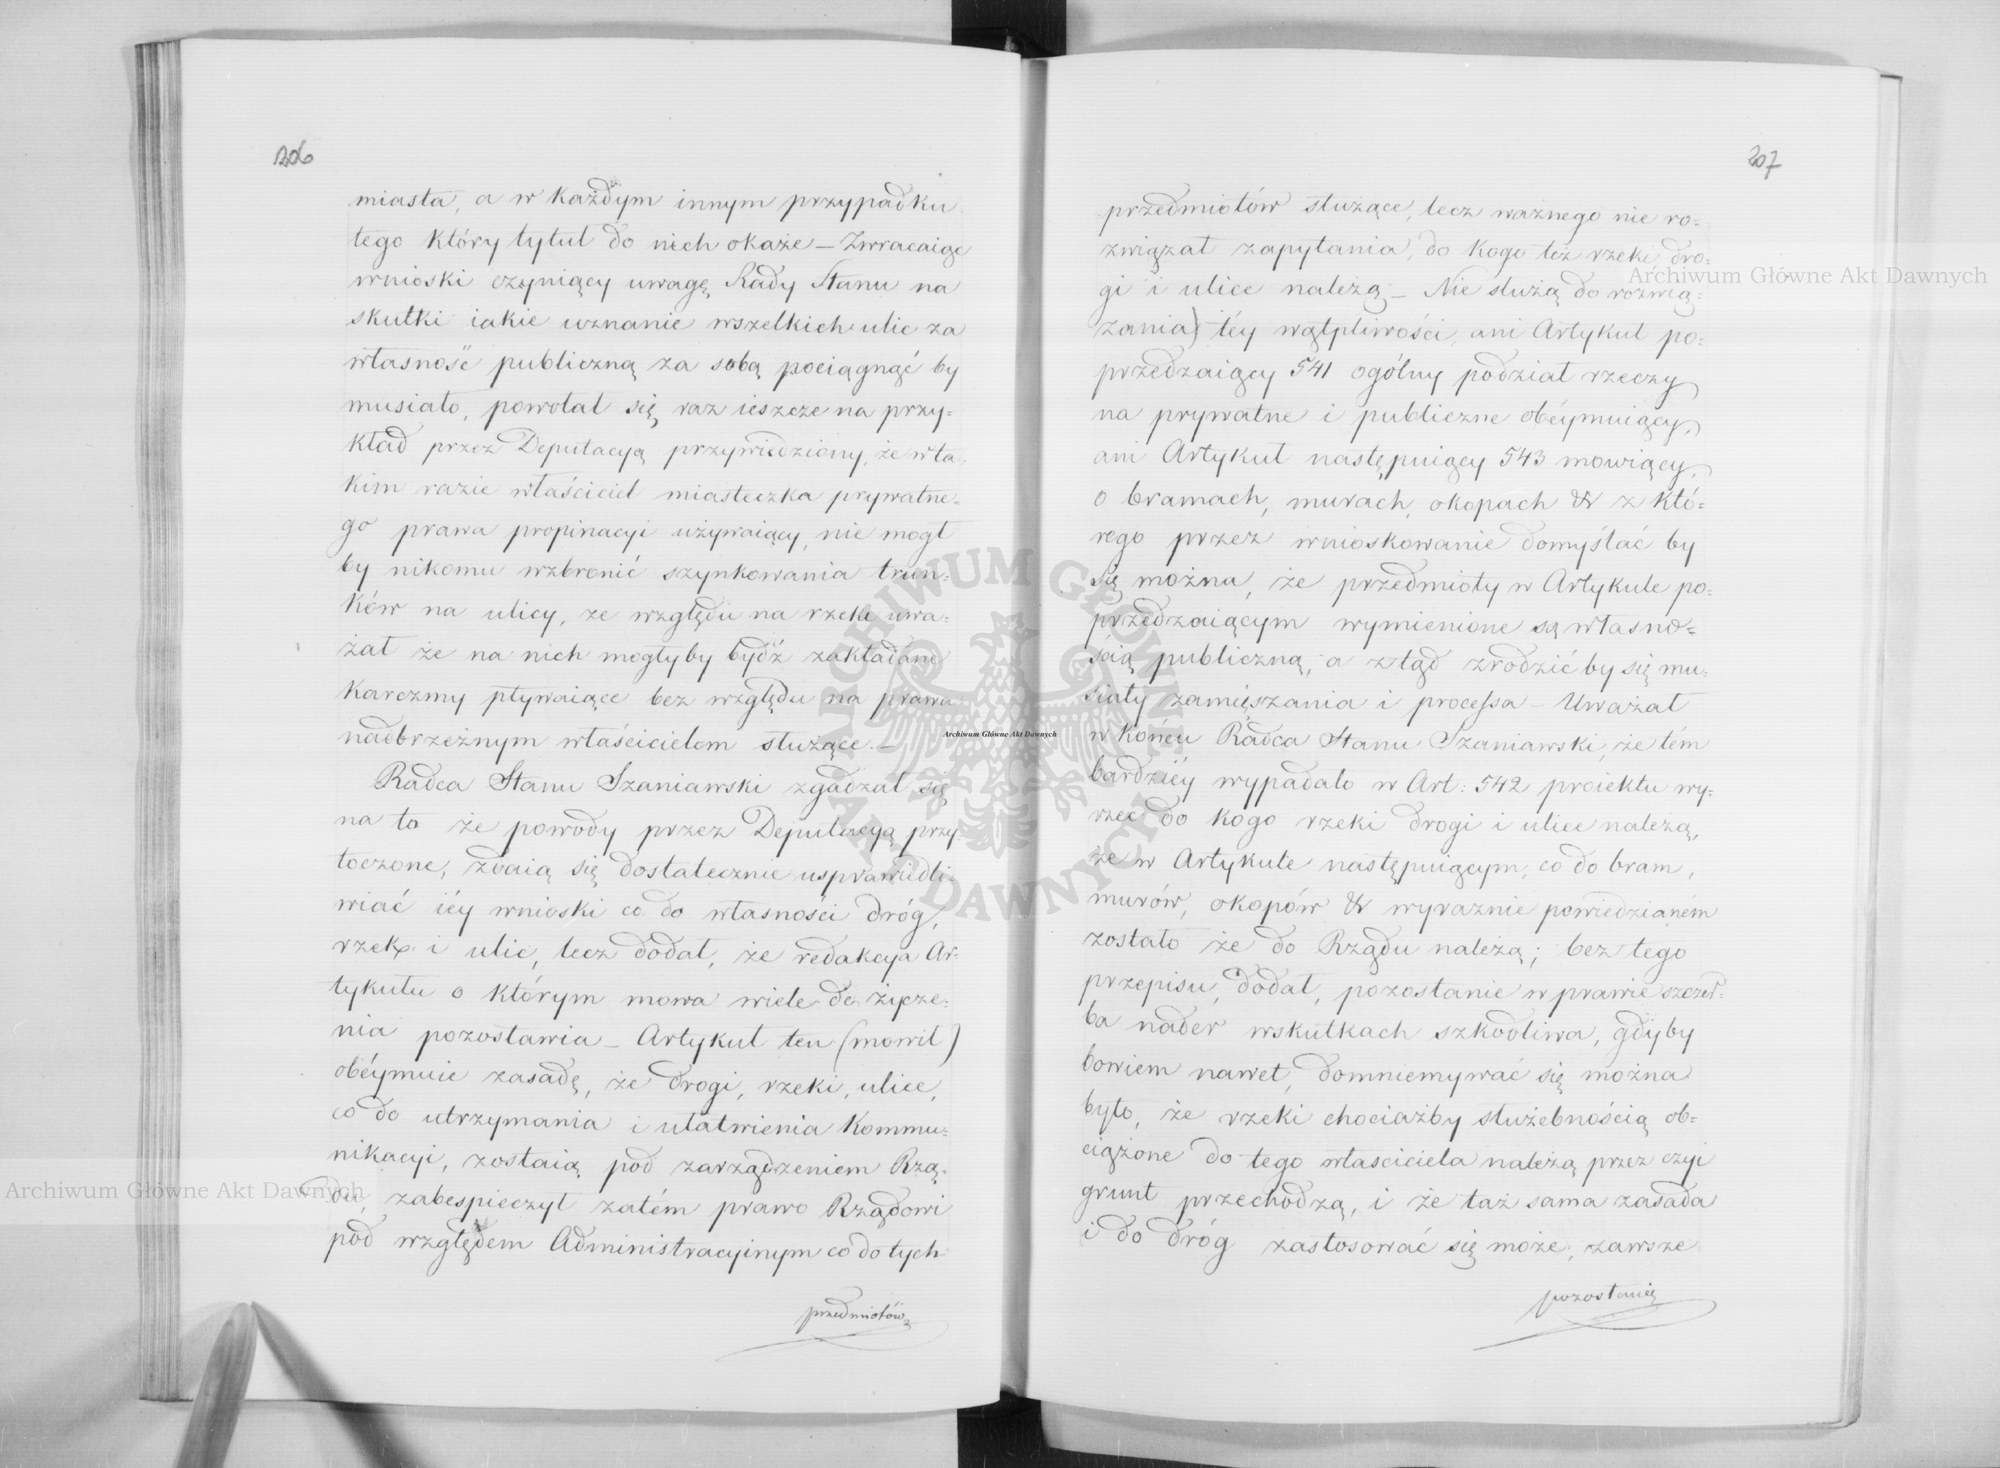 206
miasta, a w każdym innym przypadku
tego który tytuł do nich okaże – Zwracaiąc
wnioski czyniący uwagę Rady Stanu na
skutki iakie uznanie wszelkich ulic za
własność publiczną za sobą pociągnąć by
musiało, powołał się raz ieszcze na przy=
kład przez Deputacyą przywiedziony, że w ta=
kim razie właściciel miasteczka prywatne=
go prawa propinacyi używaiący, nie mogł
by nikomu wzbronić szynkowania trun=
ków na ulicy, ze względu na rzeki uwa=
żał że na nich mogłyby bydź zakładane
karczmy pływaiące bez względu na prawa
nadbrzeżnym właścicielom służące. –
Radca Stanu Szaniawski zgadzał się
na to że powody przez Deputacyą przy
toczone, zdaią się dostatecznie usprawiedli=
wiać iéy wnioski co do własności dróg,
rzek i ulic, lecz dodał, że redakcya Ar=
tykułu o którym mowa wiele do życze=
nia pozostawia – Artykuł ten (mowił)
obéymuie zasadę, że drogi, rzeki, ulice,
co do utrzymania i ułatwienia Kommu=
nikacyi, zostaią pod zarządzeniem Rzą=
du, zabespieczył zatém prawo Rządowi
pod względem Administracyinym co do tych
przedmiotów
207
przedmiotów służące, lecz ważnego nie ro=
związał zapytania, do kogo też rzeki dro=
gi i ulice należą – Nie służą do rozwią=
zania téy wątpliwości, ani Artykuł po=
przedzaiący 541 ogólny podział rzeczy
na prywatne i publiczne obéymuiący,
ani Artykuł następuiący 543 mowiący,
o bramach, murach, okopach & z któ=
rego przez wnioskowanie domyślać by
się można, że przedmioty w Artykule po=
przedzaiącym wymienione są własno=
ścią publiczną, a ztąd zrodzić by się mu=
siały zamięszania i processa – Uważał
w końcu Radca Stanu Szaniawski, że tém
bardziéy wypadało w Art: 542 proiektu wy=
rzec do kogo rzeki drogi i ulice należą,
że w Artykule następuiącym, co do bram,
murów, okopów & wyraznie powiedzianém
zostało że do Rządu należą; bez tego
przepisu, dodał, pozostanie w prawie szczer=
ba nader w skutkach szkodliwa, gdyby
bowiem nawet, domniemywać się można
było, że rzeki chociażby służebnością ob=
ciążone do tego właściciela należą przez czyi
grunt przechodzą, i że taż sama zasada
i do dróg zastosować się może, zawsze
pozostanie
Archiwum Główne Akt Dawnych
Archiwum Główne Akt Dawnych
Archiwum Główne Akt Dawnych
ARCHIWUM GŁÓWNE AKT DAWNYCH